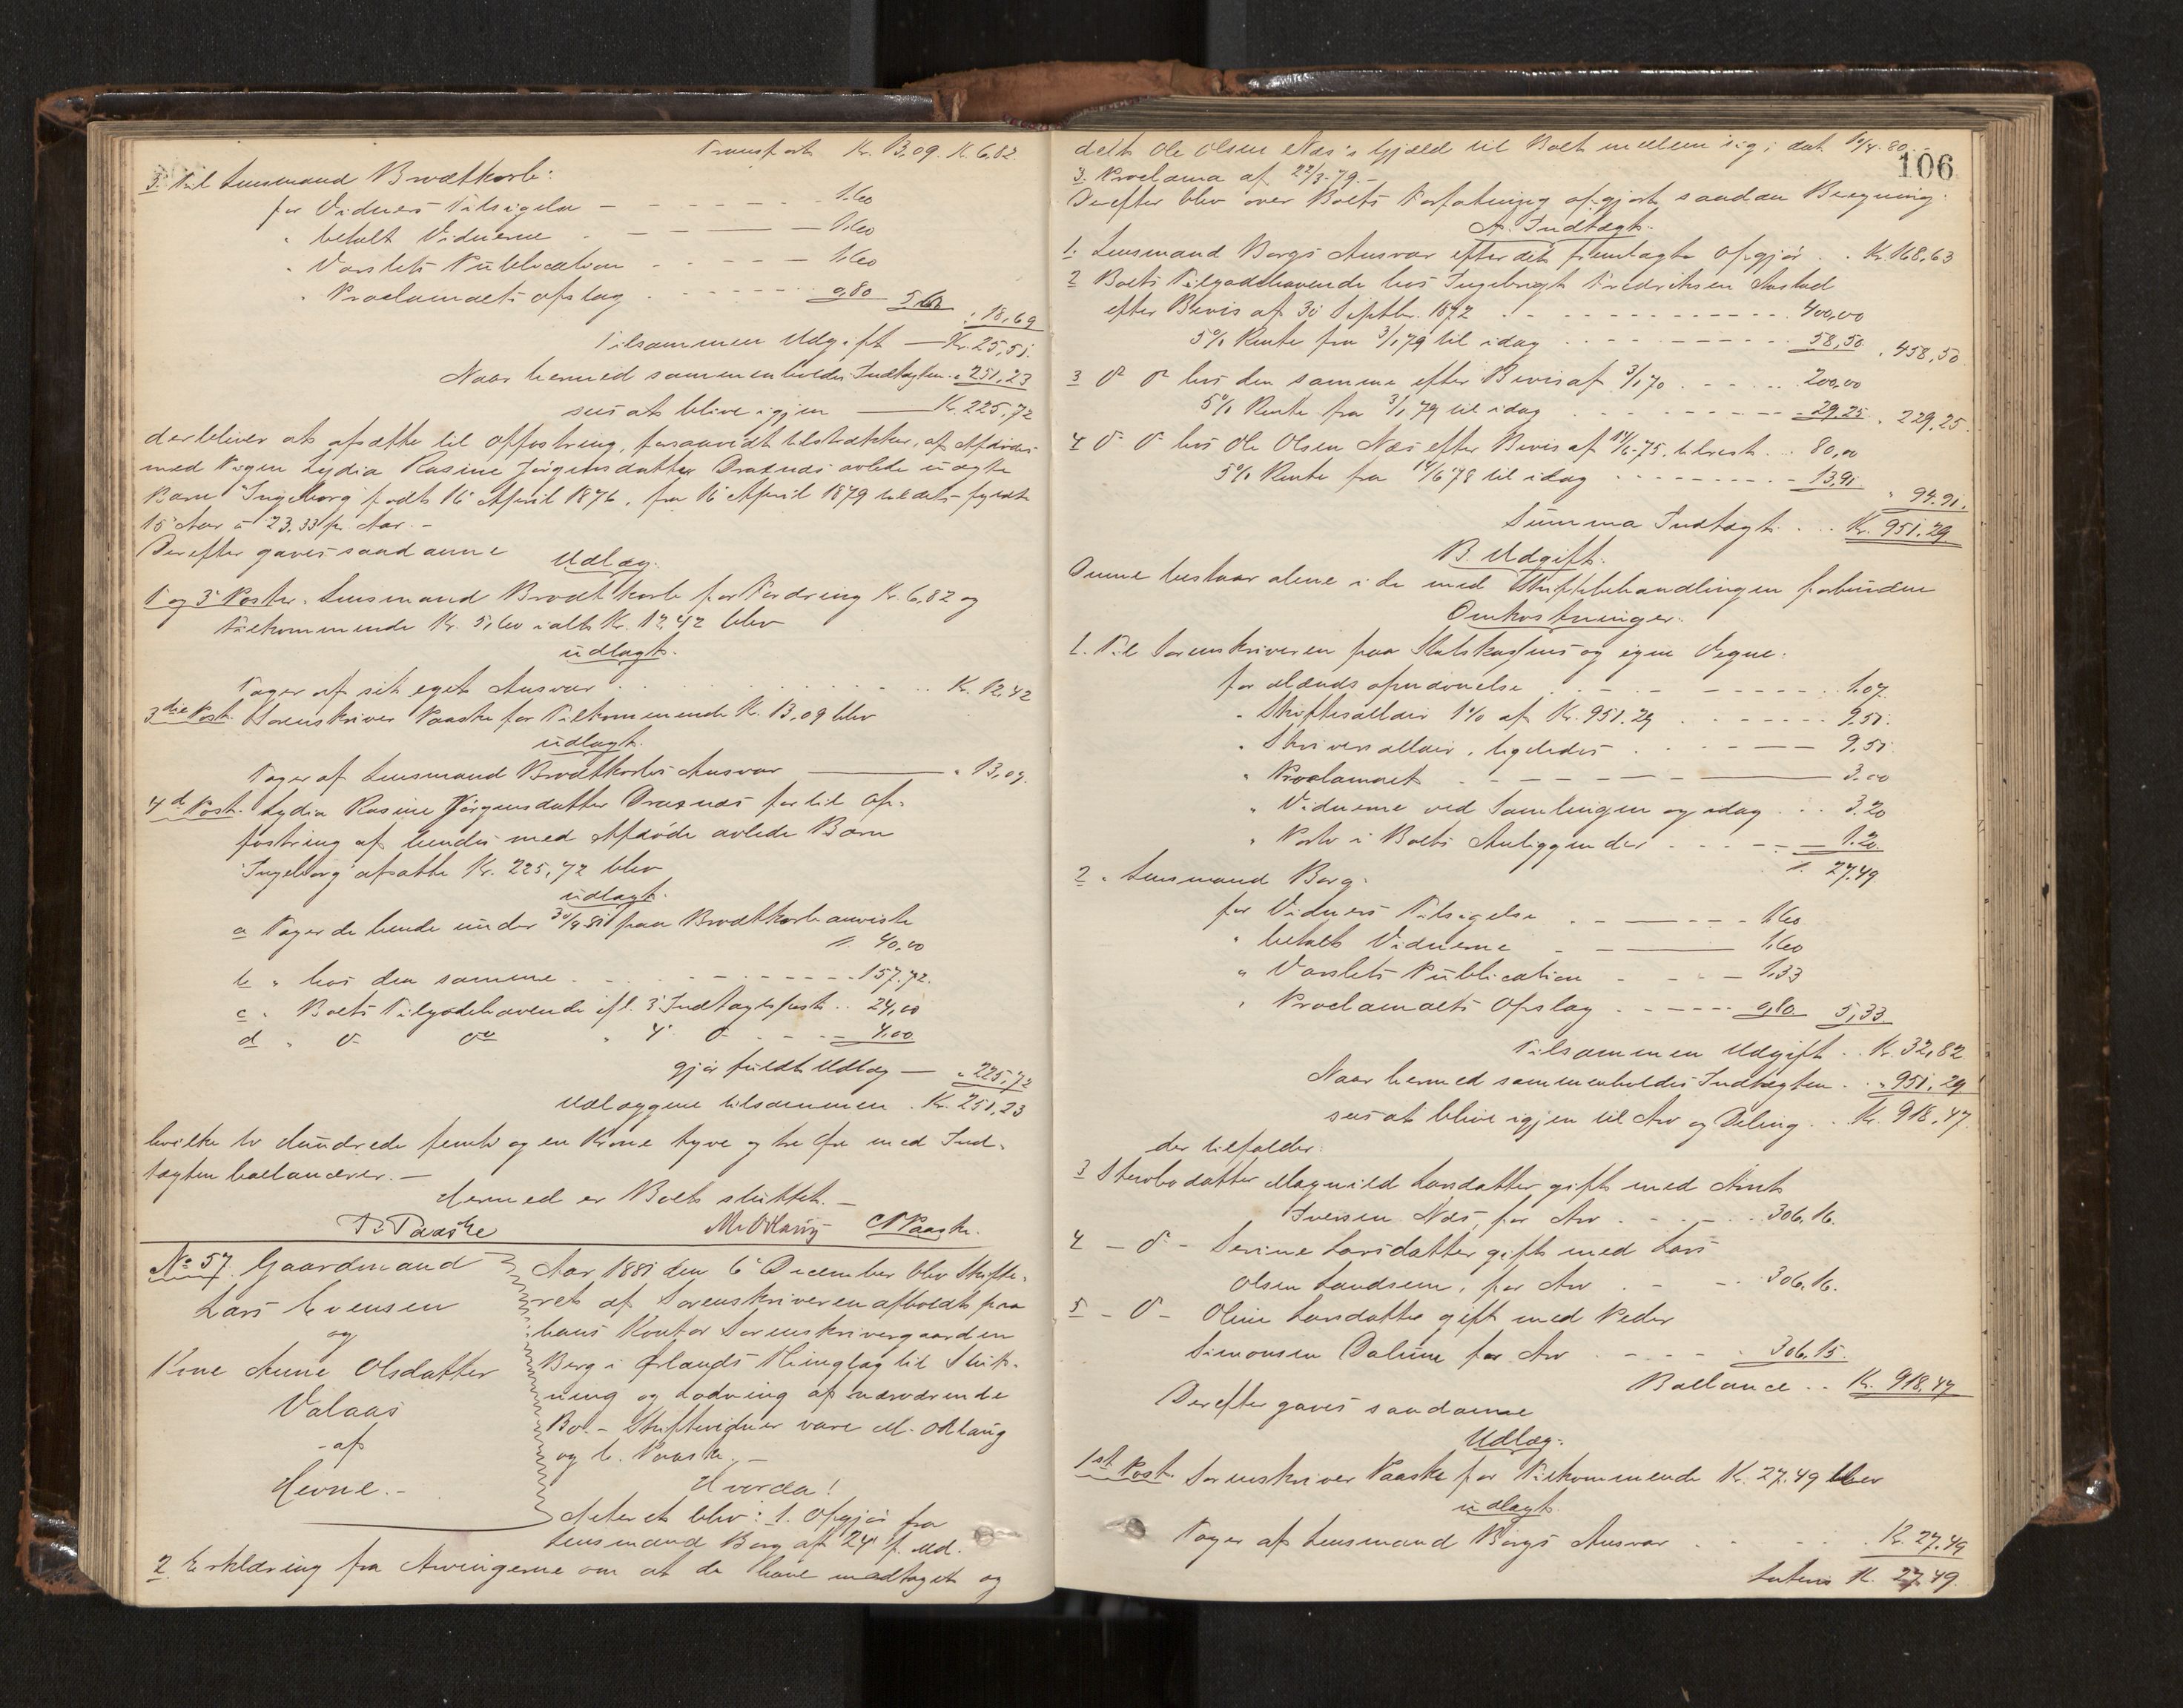 Transport Kr. 13,09. Kr. 6,82.
3. Til Lensmand Brodtkorb:
for Vidners Tilsigelse - - - - - 1.60
" betalt Vidnerne - - - 1.60
" Varslets Publication - - - 1.60
" Proclamaets opslag - - - 0,80 5,60
" 18,69
Tilsammen Udgift — Kr. 25,51.
Naar hermed sammenholdes Indtægten " 251,23
sees at blive igjen — Kr. 225,72
der bliver at afsætte til Opfostring, forsaavidt tilstrækker, af Afdødes
med Pigen Lydia Rasine Jörgensdatter avlede uægte
Barn "Ingeborg" født 16 April 1876, fra 16 April 1879 til dets fyldte
15 Aar a 23,33 pr. Aar. -
Derefter gaves saadanne
Udlæg.
1 og 3 Poster. Lensmand Brodtkorb for Fordring Kr. 6,82 og
Tilkommende Kr. 5,60 ialt Kr. 12,42 blev
udlagt.
Tager af sit eget Ansvar . . . . Kr. 12,42
3die Post. Sorenskriver Paaske for Tilkommende Kr. 13,09 blev
udlagt.
Tager af Lensmand Brodtkorbs Ansvar — " 13,09.
4de Post. Lydia Rasine Jörgensdatter for til Op-
fostring af hendes med Afdøde avlede Barn
"Ingeborg" afsatte Kr. 225,72 blev
udlagt.
a Tager de hende under 30/9 81 paa Brodtkorb anviste
40,00
b " hos den samme - - - - 157.72.
c " Boets Tilgodehavende efl. 3 Indtægtspost . . 24,00
d " " 4 - - 4.00
gjør fuldt Udlæg — " 225,72
Udlæggene tilsammen . Kr. 251,23
hvilke to Hundrede femti og en Krone tyve og tre Øre med Ind-
tægten ballancerer. —
Hermed er Boet sluttet. —
Paaske M. OHaug C Paaske.
No 57. Gaardmand
Lars Evensen
og
Kone Anne Olsdatter
Valaas
- af
Hevne. -
Aar 1881 den 6 December blev Skifte-
ret af Sorenskriveren afholdt paa
hans Kontor Sorenskrivergaarden
Berg i Ørlands Thinglag til Slut-
ning og Lodning af nærværende
Bo. - Skiftevidner vare M. OHaug
og C. Paaske. —
Hvorda!
Acteret blev: 1. Opgjør fra
Lensmand Borg af 24 f. Md.
2 Erklæring fra Arvingerne om at de have modtaget og
106
delt Ole Olsen Næs's Gjæld til Boet mellem sig; dat 80.
3. Proclama af 22/3-79. -
Derefter blev over Boets Forfatning opgjort saadan Beregning:
A. Indtægt.
1. Lensmand Borgs Ansvar efter det fremlagte Opgjør . . Kr. 168,63
2 Boets Tilgodehavende hos Ingebrigt Fredriksen Aastad
efter Bevis af 30 Septbr. 1872 . . - - - 400,00
5% Rente fra 3/1 79 til idag . - - - 58,50 " 458,50
3 hos den samme efter Bevis af 3/1 70 . - - - 200,00
5% Rente fra 3/1 79 til idag - - - 29.25 " 229,25.
4 hos Ole Olsen Næs efter Bevis af 14/6-75, tilrest . . 80,00
5% Rente fra 14/6 78 til idag - - - 13,91.
" 94.91.
Summa Indtægt . . . Kr. 951.29
B. Udgift.
Denne bestaar alene i de med Skiftebehandlingen forbundne
Omkostninger:
1. Til Sorenskriveren paa Statskassens og egne Vegne:
for Mænds opnævnelse - - - 1.07.
" Skifteskat 1% af Kr. 951.29 . - - - 9.51.
" Skriver , ligeledes . - - - 9,51.
" Proclamaet - - - 3.00
" Vidnerne ved Samlingen og idag . . . 3.20
" Porto i Boets Anliggender - - - 1.20.
27.49
2. Lensmand Borg.
for Vidners Tilsigelse . - - - 1.60
" betalt Vidnerne - - - 1.60
" Varslets Publication - - - 1,33
" Proclamaets Opslag . - - - 0,80 5,33
Tilsammen Udgift . . Kr. 32,82
Naar hermed sammenholdes Indtægten . . " 951,29
sees at blive igjen til Arv og Deling . . Kr. 918,47.
der tilfalder:
3 Stervbodatter Magnild Larsdatter gift med Arnt
Iversen Næs, for Arv . - - - 306.16.
4 - - Serine Larsdatter gift med Lars
Olsen Sandsem, for Arv . - - . 306.16.
5 - - Oline Larsdatter gift med Peder
Simonsen for Arv . - - - . 306.15.
Ballance . . Kr. 918,47
Derefter gaves saadanne
Udlæg:
1st Post. Sorenskriver Paaske for Tilkommende Kr. 27.49 blev
udlagt.
Tager af Lensmand Borgs Ansvar . . . . Kr. 27.49
Lateris Kr. 27,49.